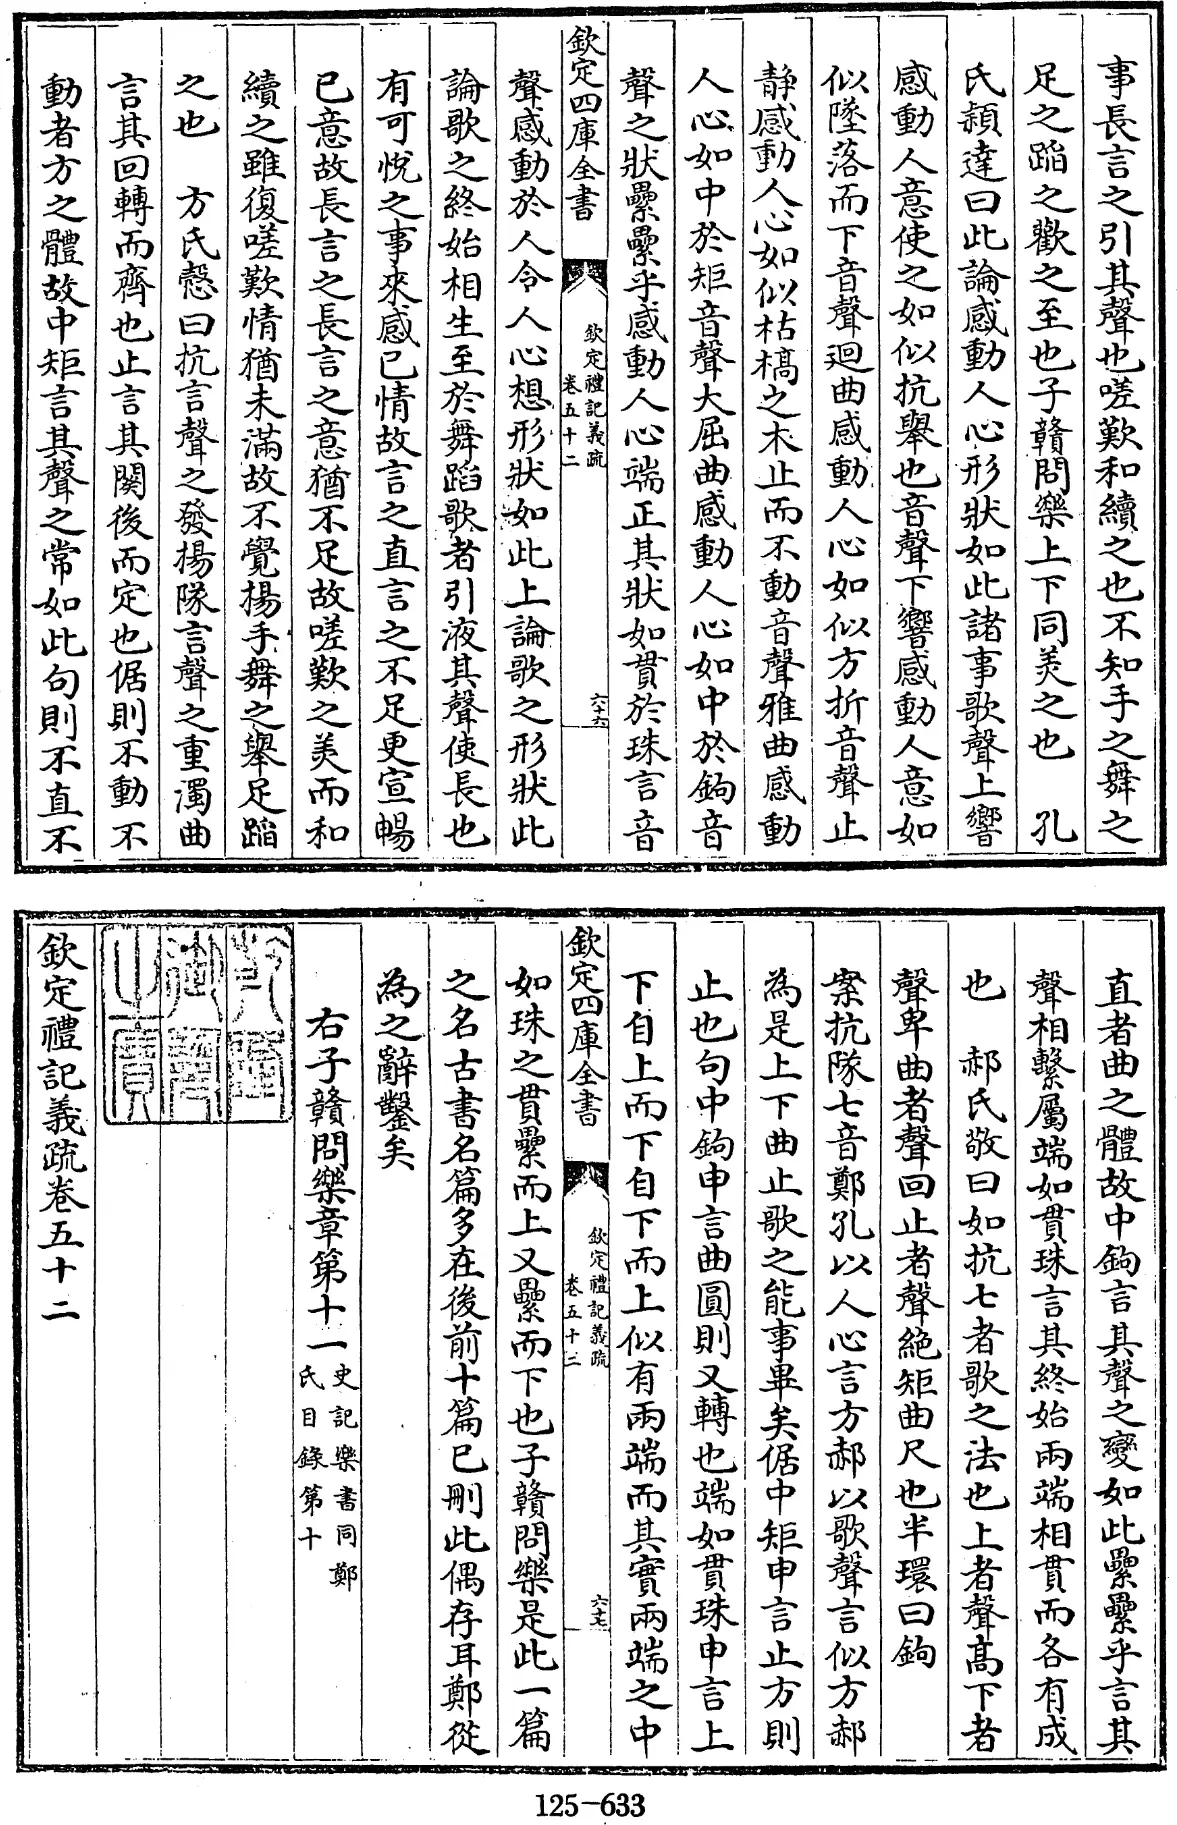 事長言之引其聲也嗟歎和續之也不知手之舞之
足之蹈之歡之至也子贛問樂上下同美之也　孔
氏穎達曰此論感動人心形狀如此諸事歌聲上響
感動人意使之如似抗舉也音聲下響感動人意如
似墜落而下音聲迴曲感動人心如似方折音聲止
靜感動人心如似枯槁之木止而不動音聲雅曲感動
人心如中於矩音聲大屈曲感動人心如中於鉤音
聲之狀纍纍乎感動人心端正其狀如貫於珠言音
欽定四庫全書
欽定禮記義疏
卷五十二
六十六
聲感動於人令人心想形狀如此上論歌之形狀此
論歌之終始相生至於舞蹈歌者引液其聲使長也
有可悅之事來感已情故言之直言之不足更宣暢
已意故長言之長言之意猶不足故嗟歎之美而和
續之雖復嗟歎情猶未滿故不覺揚手舞之舉足蹈
之也　方氏慤曰抗言聲之發揚隊言聲之重濁曲
言其回轉而齊也止言其闋後而定也倨則不動不
動者方之體故中矩言其聲之常如此句則不直不
直者曲之體故中鉤言其聲之變如此纍纍乎言其
聲相繫屬端如貫珠言其終始兩端相貫而各有成
也　郝氏敬曰如抗七者歌之法也上者聲高下者
聲卑曲者聲回止者聲絶矩曲尺也半環曰鉤
案抗隊七音鄭孔以人心言方郝以歌聲言似方郝
為是上下曲止歌之能事畢矣倨中矩申言止方則
止也句中鉤申言曲圓則又轉也端如貫珠申言上
下自上而下自下而上似有兩端而其實兩端之中
欽定四庫全書
欽定禮記義疏
卷五十二
六十七
如珠之貫纍而上又纍而下也子贛問樂是此一篇
之名古書名篇多在後前十篇已刪此偶存耳鄭從
為之辭鑿矣
右子贛問樂章第十一史記樂書同鄭
氏目錄第十
欽定禮記義疏卷五十二
125-633